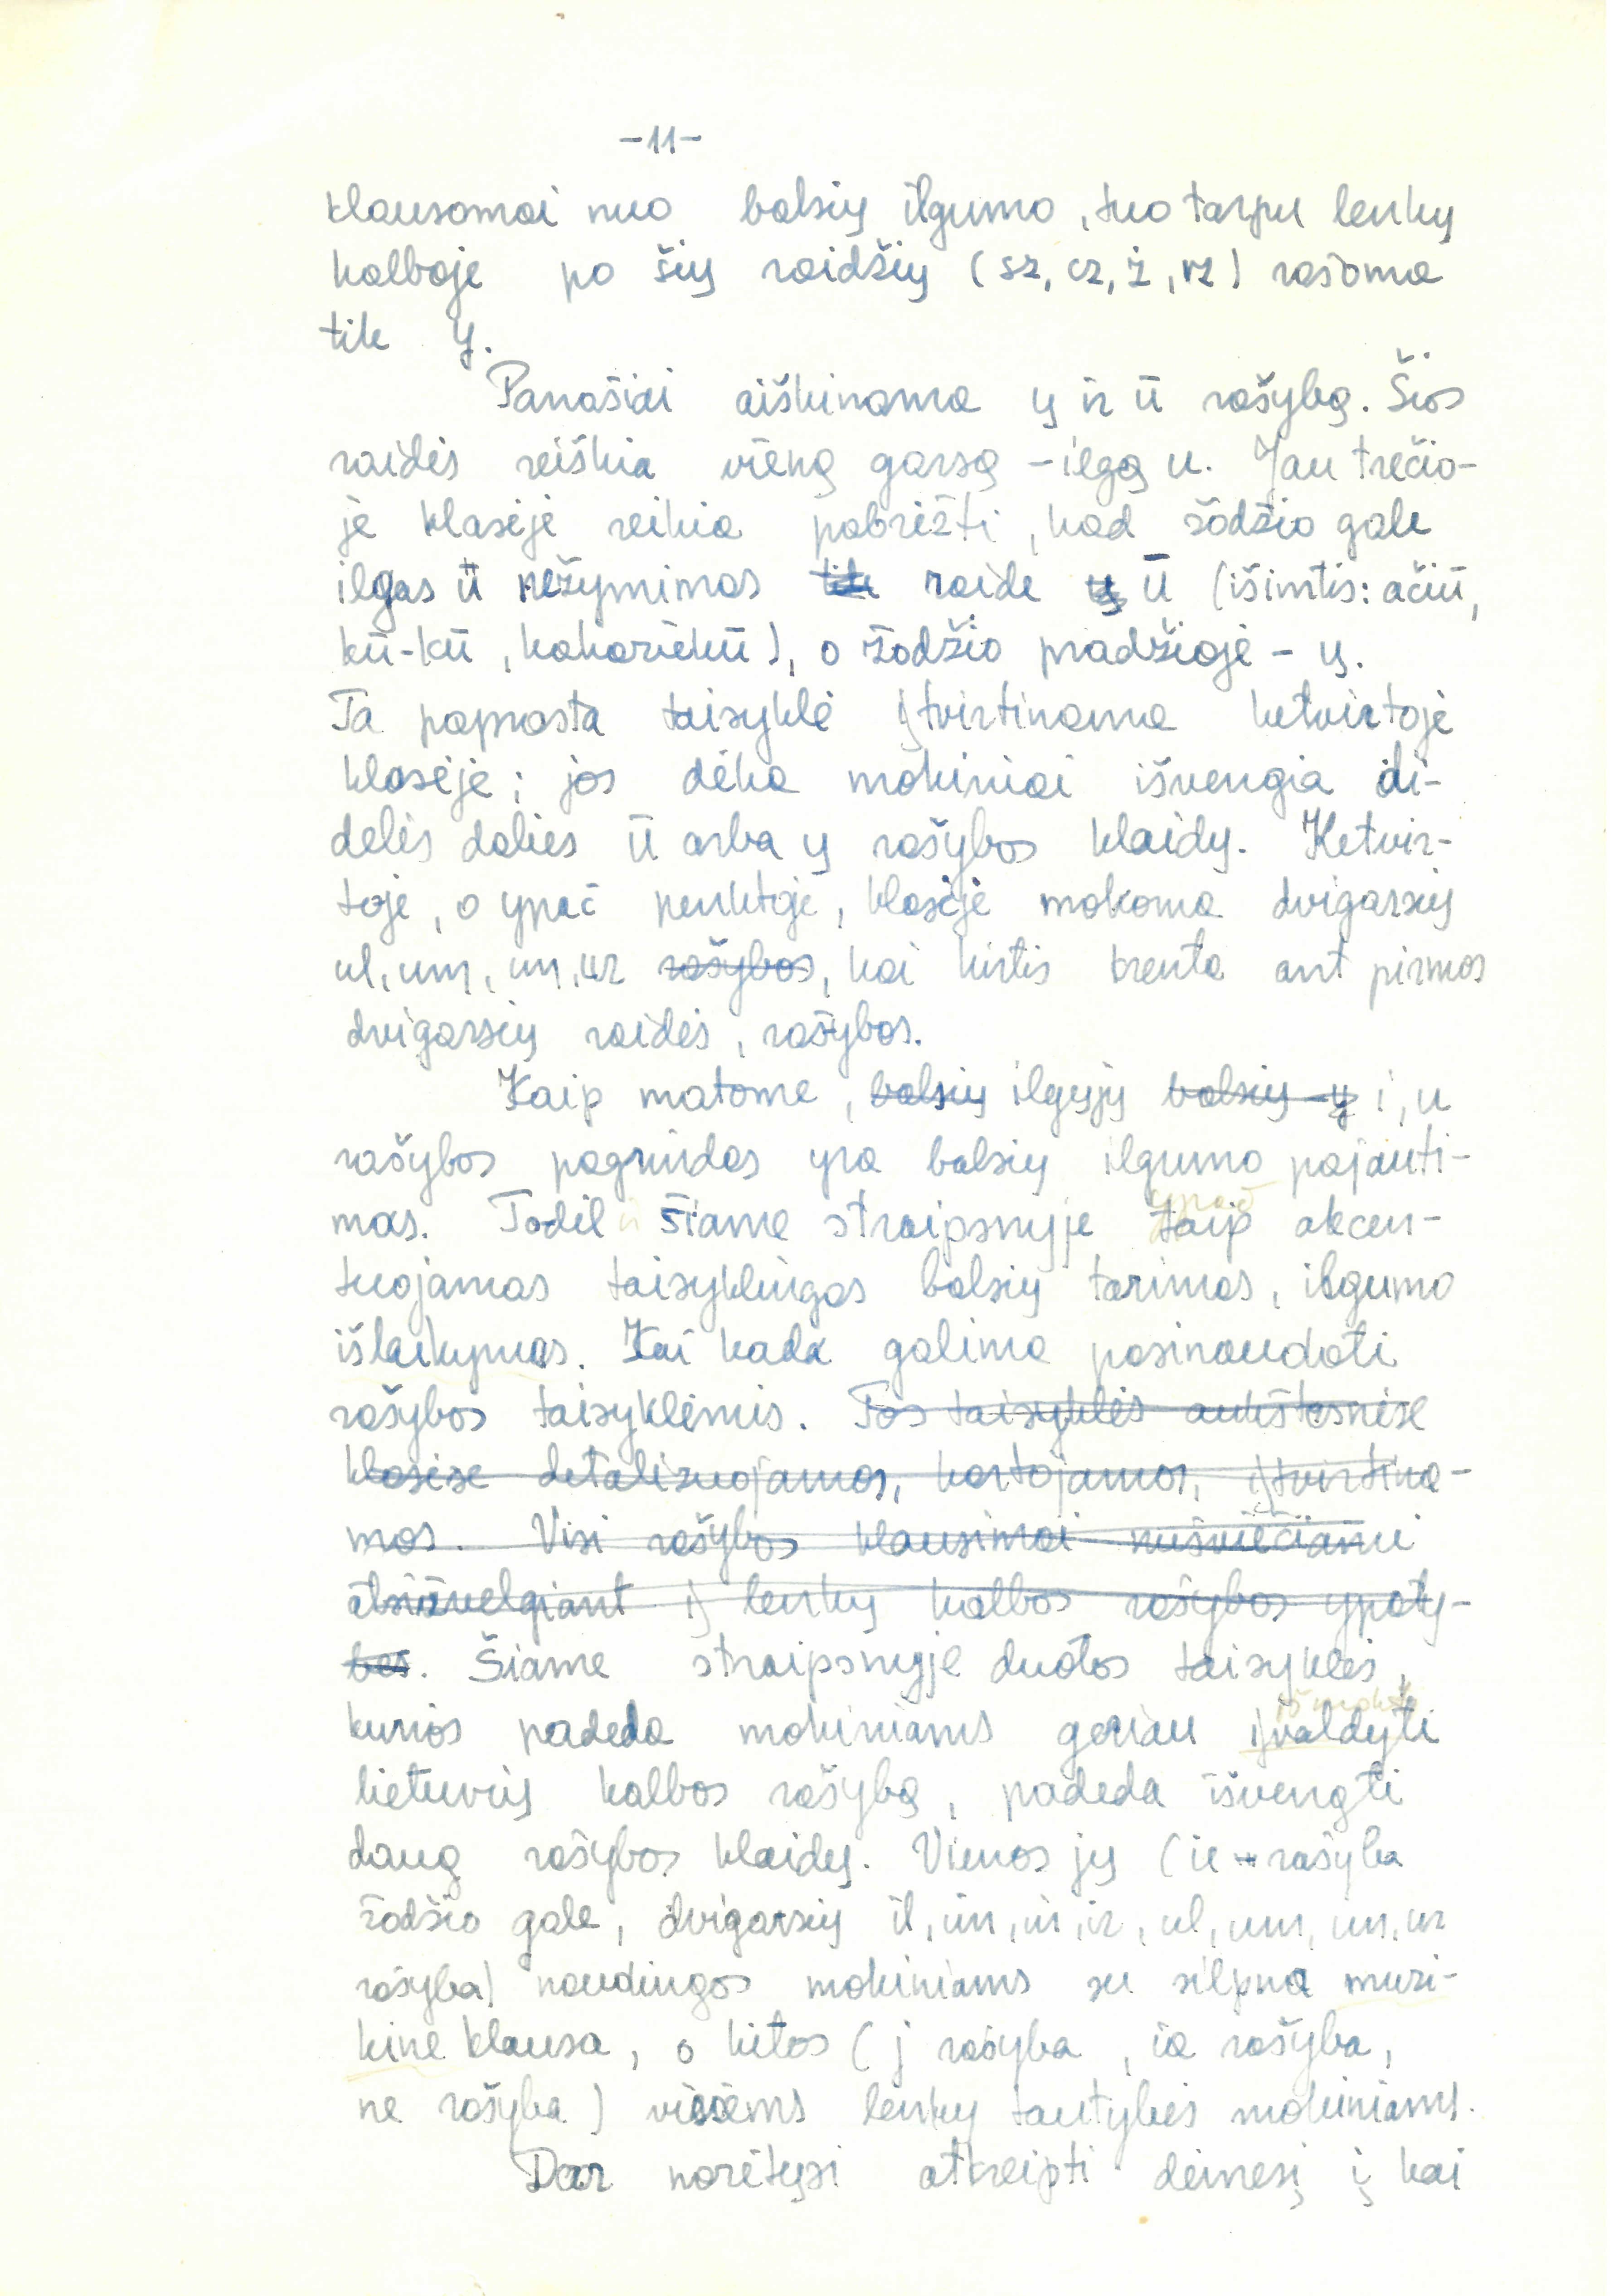 -11-
klausomai nuo balsių ilgumo, tuo tarpu lenkų
kalboje po šių raidžių (sz, cz, ż, rz) rašoma
tik y.
Panašiai aiškinama ų ir ū rašyba. Šios
raidės reiškia vieną garsą - ilgą u. Jau trečio-
je klasėje reikia pabrėžti, kad žodžio gale
ilgas ū nežymimas tik raide ų ū (išimtis: ačiū,
kū-kū, kakariekū), o žodžio pradžioje - ų.
Ta paprasta taisyklė įtvirtinama ketvirtoje
klasėje; jos dėka mokiniai išvengia di-
delės dalies ū arba ų rašybos klaidų. Ketvir-
toje, o ypač penktoje, klasėje mokoma dvigarsių
ul, um, un, ur rašybos, kai kirtis krenta ant pirmos
dvigarsių raidės, rašybos.
Kaip matome, balsių ilgųjų balsių y i, u
rašybos pagrindas yra balsių ilgumo pajauti-
mas. Todėl ir šiame straipsnyje ypač taip akcen-
tuojamas taisyklingas balsių tarimas, ilgumo
išlaikymas. Kai kada galima pasinaudoti
rašybos taisyklėmis. Tos taisyklės aukštesnėse
klasėse detalizuojamos, kartojamos, įtvirtina-
mos. Visi rašybos klausimai nušviečiami
atsižvelgiant į lenkų kalbos rašybos ypaty-
bes. Šiame straipsnyje duotos taisyklės,
kurios padeda mokiniams geriau įvaldyti
lietuvių kalbos rašybą, padeda išvengti
daug rašybos klaidų. Vienos jų (ie - rašyba
žodžio gale, dvigarsių il, im, in, ir, ul, um, un, ur
rašyba) naudingos mokiniams su silpna muzi-
kine klausa, o kitos (j rašyba, ia rašyba,
ne rašyba) visiems lenkų tautybės mokiniams.
Dar norėtųsi atkreipti dėmesį į kai